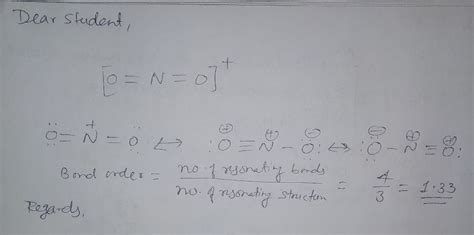 Dear Student,
[O = N = O]⁺
Ö = N⁺ = Ö ↔ :O⁺ ≡ N - O⁻: ↔ :O⁻ - N ≡ O⁺:
Bond order = no. of resonating bonds / no. of resonating structure = 4 / 3 = 1.33
Regards,